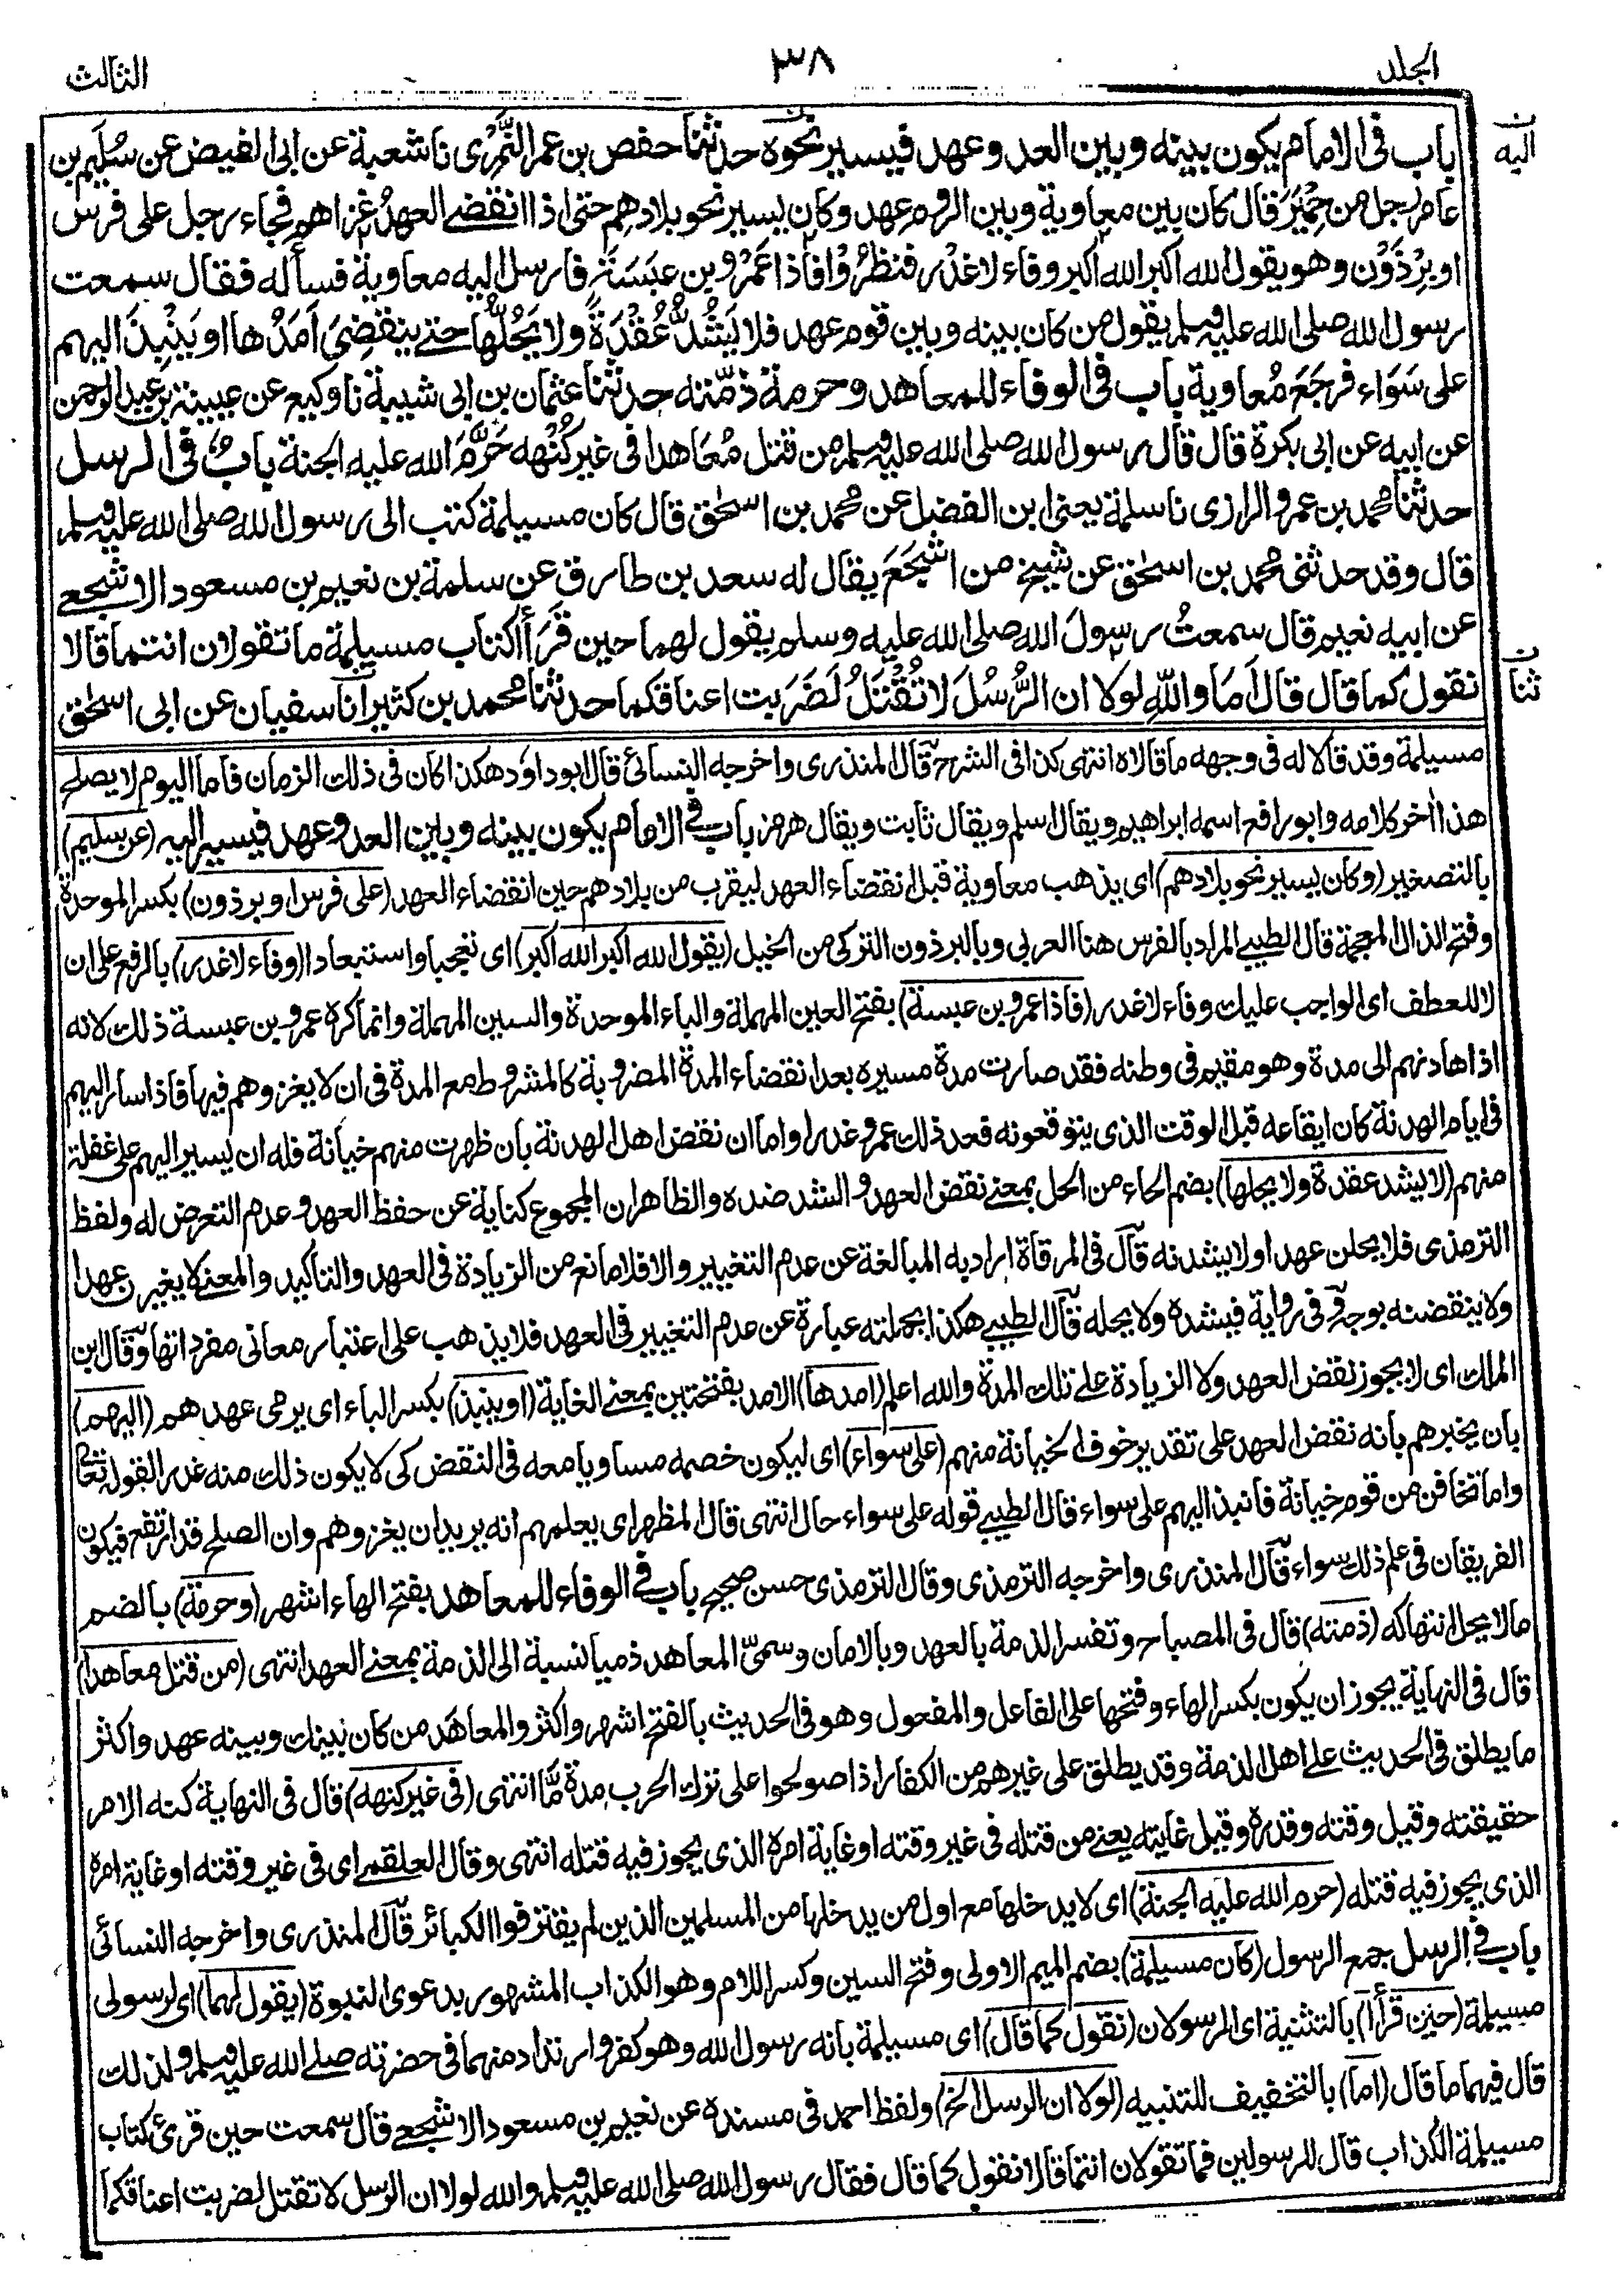 الجلد
٣٨
الثالث
باب فى الامام يكون بينه وبين العدو عهد فيسير نحوه حدثنا حفص بن عمر النَّمَرى نا شعبة عن ابى الفيض عن سُلَيم بن
ن اليه
عامر رجل من حِمْيَرَ قال كان بين معاوية وبين الروم عهد وكان يسير نحو بلادهم حتى اذا انقضے العهدُ غزاهم فجاء رجل على فرس
او بِرْذَوْن وهو يقول الله اكبر الله اكبر وفاء لا غدر فنظرُوْا فاذا عَمْرُو بن عَبَسَةَ فارسل اليه معاوية فسأله فقال سمعت
رسول الله صلى الله عليه وسلم يقول من كان بينه وبين قوم عهد فلا يَشُدُّ عُقْدَةً ولا يَحُلُّها حتے ينقضِىَ اَمَدُها او يَنْبِذَ اليهم
على سَوَاء فرجَعَ مُعاوية باب فى الوفاء للمعاهد وحرمة ذمّته حدثنا عثمان بن ابى شيبة نا وكيع عن عيينة بن عبد الرحمن
عن ابيه عن ابى بكرة قال قال رسول الله صلى الله عليه وسلم من قتل مُعَاهدا فى غير كُنْهه حَرَّمَ الله عليه الجنة بابٌ فى الرسل
حدثنا محمد بن عمرو الرازى نا سلمة يعنى ابن الفضل عن محمد بن اسحٰق قال كان مسيلمة كتب الى رسول الله صلى الله عليه وسلم
قال وقد حدثنى محمد بن اسحٰق عن شيخ من اشْجَعَ يقال له سعد بن طارق عن سلمة بن نعيم بن مسعود الاشجعے
عن ابيه نعيم قال سمعتُ رسولَ الله صلى الله عليه وسلم يقول لهما حين قَرَأَا كتاب مسيلمة ما تقولان انتما قالا
نقول كما قال قال اَمَا واللّٰهِ لولا ان الرُّسُلَ لا تُقْتَلُ لَضَرَبت اعناقكما حدثنا محمد بن كثير انا سفيان عن ابى اسحٰق
ن ثنا
مسيلمة وقد قالا له فى وجهه ما قالاه انتهى كذا فى الشرح قال المنذرى واخرجه النسائى قال ابوداؤد هكذا كان فى ذلك الزمان فاما اليوم لا يصلح
هذا اٰخر كلامه وابو رافع اسمه ابراهيم ويقال اسلم ويقال ثابت ويقال هرمز باب فے الامام يكون بينه وبين العدو عهد فيسير اليه (عن سليم)
بالتصغير (وكان يسير نحو بلادهم) اى يذهب معاوية قبل انقضاء العهد ليقرب من بلادهم حين انقضاء العهد (على فرس او برذون) بكسر الموحدة
وفتح الذال المعجمة قال الطيبے المراد بالفرس هنا العربى وبالبرذون التركى من الخيل (يقول الله اكبر الله اكبر) اى تعجبا واستبعادا (وفاء لا غدر) بالرفع على ان
لا للعطف اى الواجب عليك وفاء لا غدر (فاذا عمرو بن عبسة) بفتح العين المهملة والباء الموحدة والسين المهملة وانما كره عمرو بن عبسة ذلك لانه
اذا هادنهم الى مدة وهو مقيم فى وطنه فقد صارت مدة مسيره بعد انقضاء المدة المضروبة كالمشروط مع المدة فى ان لا يغزوهم فيها فاذا سار اليهم
فى ايام الهدنة كان ايقاعه قبل الوقت الذى يتوقعونه فعد ذلك عمرو غدرا واما ان نقض اهل الهدنة بان ظهرت منهم خيانة فله ان يسير اليهم على غفلة
منهم (لا يشد عقدة ولا يحلها) بضم الحاء من الحل بمعنے نقض العهد والشد ضده والظاهر ان المجموع كناية عن حفظ العهد وعدم التعرض له ولفظ
الترمذى فلا يحلن عهدا ولا يشدنه قال فى المرقاة اراد به المبالغة عن عدم التغيير والا فلا مانع من الزيادة فى العهد والتاكيد والمعنے لا يغيرن عهدا
ولا ينقضنه بوجه وفى رواية فيشده ولا يحله قال الطيبے هكذا بجملته عبارة عن عدم التغيير فى العهد فلا يذهب على اعتبار معانى مفرداتها وقال ابن
الملك اى لا يجوز نقض العهد ولا الزيادة علے تلك المدة والله اعلم (امدها) الامد بفتحتين بمعنے الغاية (او ينبذ) بكسر الباء اى يرمى عهدهم (اليهم)
بان يخبرهم بانه نقض العهد على تقدير خوف الخيانة منهم (على سواء) اى ليكون خصمه مساويا معه فى النقض كى لا يكون ذلك منه غدرا لقوله تعالى
واما تخافن من قوم خيانة فانبذ اليهم على سواء قال الطيبے قوله على سواء حال انتهى قال المظهر اى يعلمهم انه يريد ان يغزوهم وان الصلح قد ارتفع فيكون
الفريقان فى علم ذلك سواء قال المنذرى واخرجه الترمذى وقال الترمذى حسن صحيح باب فے الوفاء للمعاهد بفتح الهاء اشهر (وحرمة) بالضم
ما لا يحل انتهاكه (ذمته) قال فى المصباح وتفسر الذمة بالعهد وبالامان وسمىّ المعاهد ذميا نسبة الى الذمة بمعنے العهد انتهى (من قتل معاهدا)
قال فى النهاية يجوز ان يكون بكسر الهاء وفتحها على الفاعل والمفعول وهو فى الحديث بالفتح اشهر واكثر والمعاهَد من كان بينك وبينه عهد واكثر
ما يطلق فى الحديث علے اهل الذمة وقد يطلق على غيرهم من الكفار اذا صولحوا على ترك الحرب مدة مَّا انتهى (فى غير كنهه) قال فى النهاية كنه الامر
حقيقته وقيل وقته وقدره وقيل غايته يعنے من قتله فى غير وقته او غاية امره الذى يجوز فيه قتله انتهى وقال العلقمے اى فى غير وقته او غاية امره
الذى يجوز فيه قتله (حرم الله عليه الجنة) اى لا يدخلها مع اول من يدخلها من المسلمين الذين لم يقترفوا الكبائر قال المنذرى واخرجه النسائى
باب فے الرسل جمع الرسول (كان مسيلمة) بضم الميم الاولى وفتح السين وكسر اللام وهو الكذاب المشهور يدعوى النبوة (يقول لهما) اى لرسولى
مسيلمة (حين قرأا) بالتثنية اى الرسولان (نقول كما قال) اى مسيلمة بانه رسول الله وهو كفر وارتداد منهما فى حضرته صلے الله عليه وسلم ولذلك
قال فيهما ما قال (اما) بالتخفيف للتنبيه (لولا ان الرسل الخ) ولفظ احمد فى مسنده عن نعيم بن مسعود الاشجعے قال سمعت حين قرئ كتاب
مسيلمة الكذاب قال للرسولين فما تقولان انتما قالا نقول كما قال فقال رسول الله صلى الله عليه وسلم والله لولا ان الرسل لا تقتل لضربت اعناقكما